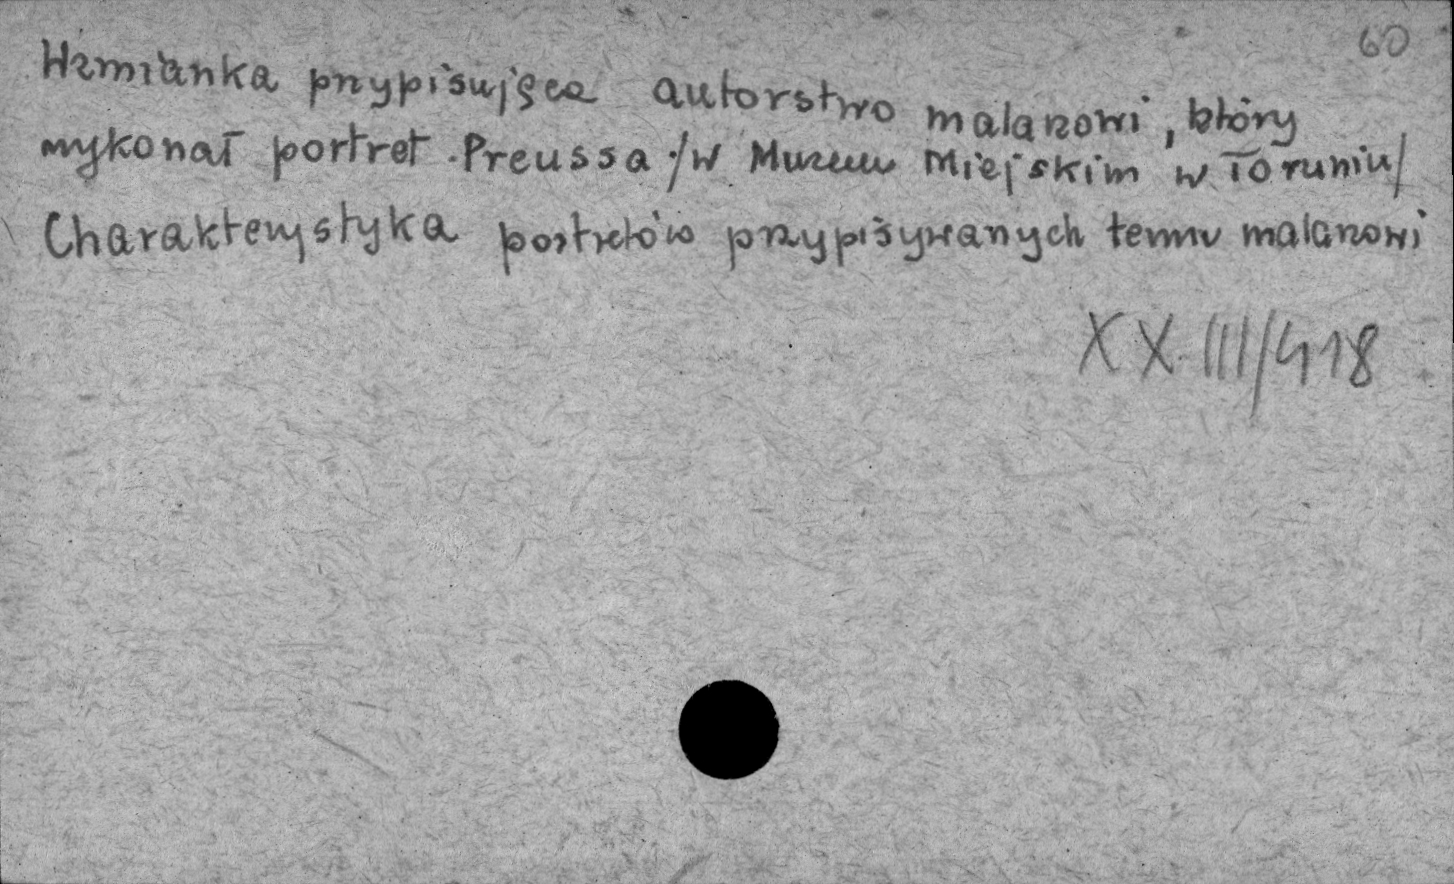 60
Wzmianka przypisująca autorstwo malarzowi, który
wykonał portret Preussa /w Muzeum Miejskim w Toruniu/
Charakterystyka portretów przypisywanych temu malarzowi
XX.III/418